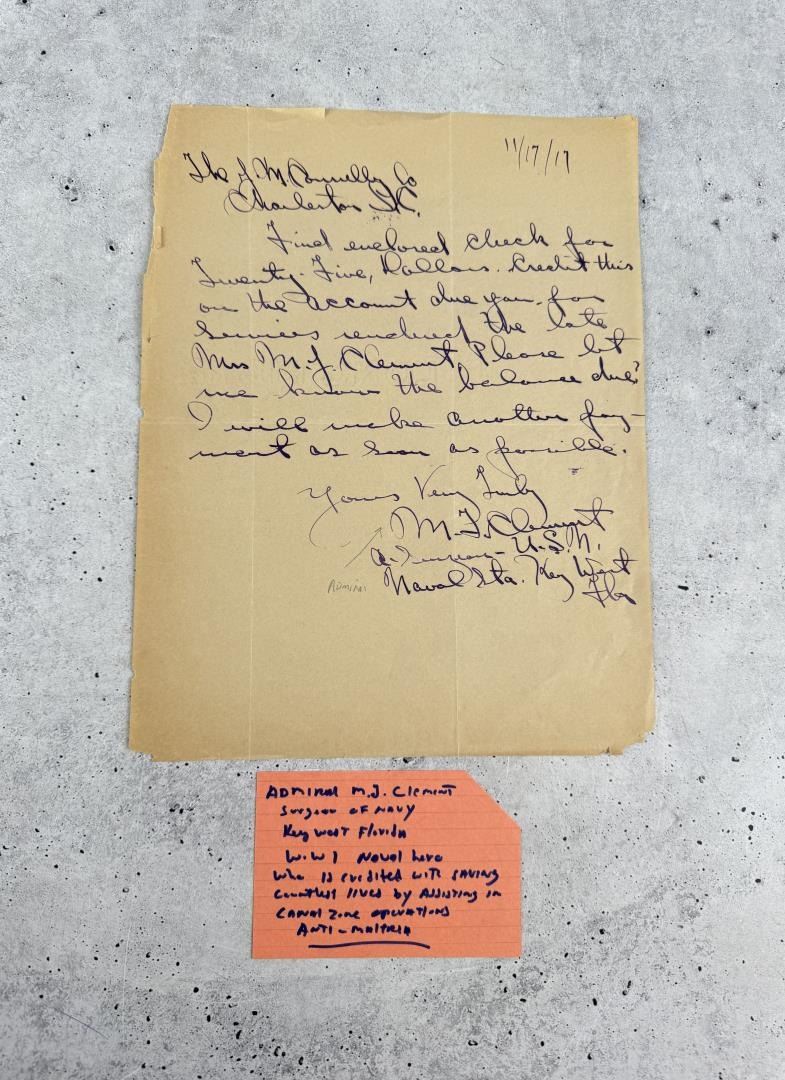 11/17/17
The J. M. Connelly Co
Charleston S.C.
Find enclosed check for
Twenty-Five, Dollars. Credit this
on the account due you for
services rendered the late
Mrs M. J. Clement, Please let
me know the balance due?
I will make another pay-
ment as soon as possible.
Yours Very Truly
M. J. Clement
U.S.N.
Naval Sta. Key West
Fla
ADMIRAL
ADMIRAL M.J. Clement
Surgeon OF NAVY
Key West Florida
W.W 1 Naval hero
who is credited with saving
countless lives by Assisting in
CANAL Zone operations
ANTI-MALARIA